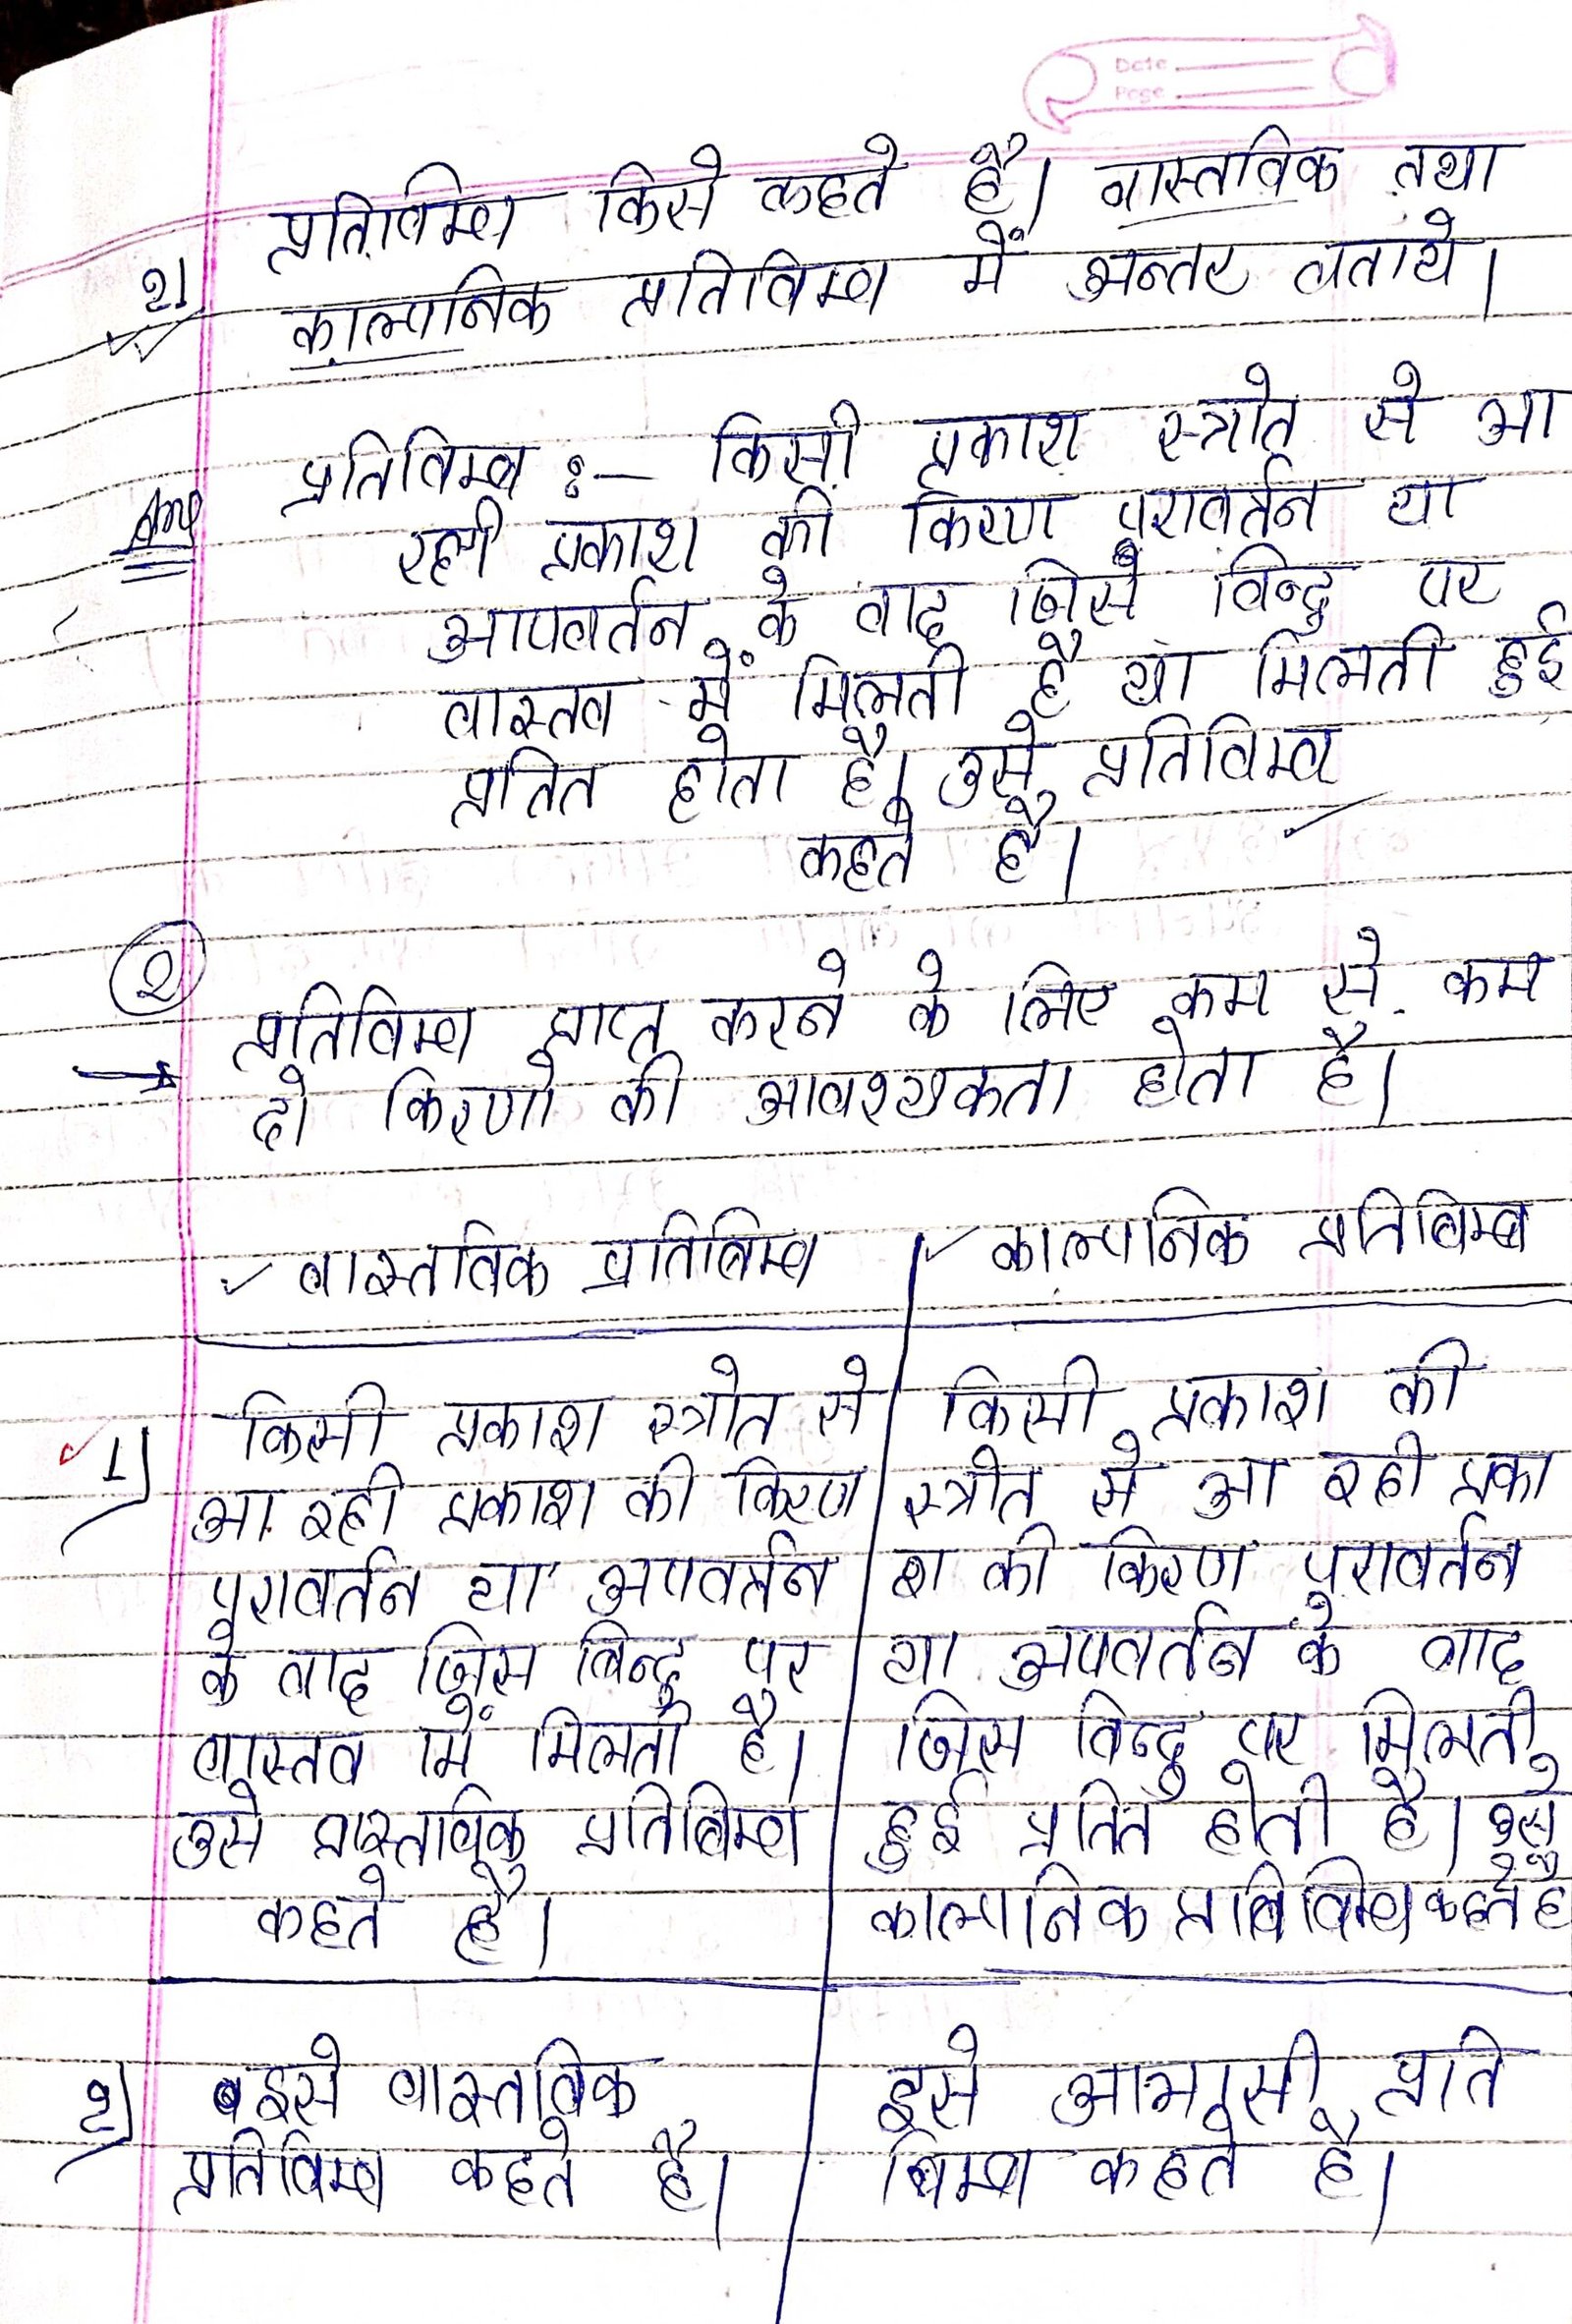 Date
Page
प्रतिविम्ब किसे कहते है। वास्तविक तथा
2) काल्पनिक प्रतिविम्ब में अन्तर बताये।
प्रतिविम्ब :- किसी प्रकाश स्त्रोत से आ
रही प्रकाश की किरण परावर्तन या
आपवर्तन के वाद जिसे विन्दु पर
वास्तव में मिलती है या मिलती हुई
प्रतित होता है। उसे प्रतिविम्ब
कहते है।
2
→ प्रतिविम्ब प्राप्त करने के लिए कम से कम
दो किरणो की आवश्यकता होता है।
वास्तविक प्रतिबिम्ब काल्पनिक प्रतिबिम्ब
1) किसी प्रकाश स्त्रोत से
आ रही प्रकाश की किरण
परावर्तन या अपवर्तन
के वाद जिस बिन्दु पर
वास्तव में मिलती है।
उसे वास्तविक प्रतिबिम्ब
कहते है।
किसी प्रकाश की
स्त्रोत से आ रही प्रका
श की किरण परावर्तन
या अपवर्तन के वाद
जिस विन्दु पर मिलती
हुई प्रतित होती है। उसे
काल्पनिक प्रतिविम्ब कहते है
2) इसे वास्तविक
प्रतिविम्ब कहते है।
इसे आभासी प्रति
बिम्ब कहते है।